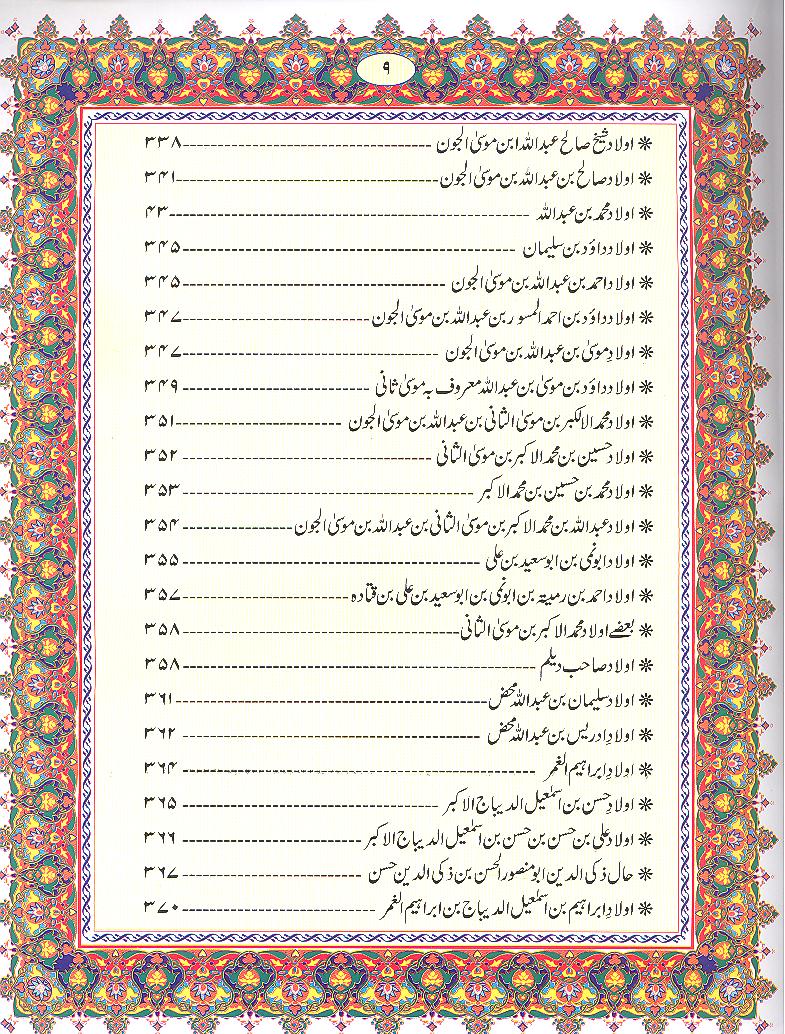 ۹
❊ اولاد شیخ صالح عبداللہ ابن موسیٰ الجون ------ ۳۳۸
❊ اولاد صالح بن عبداللہ بن موسیٰ الجون ------ ۳۴۱
❊ اولاد محمد بن عبداللہ ------ ۴۳
❊ اولاد داؤد بن سلیمان ------ ۳۴۵
❊ اولاد احمد بن عبداللہ بن موسیٰ الجون ------ ۳۴۵
❊ اولاد داؤد بن احمد المسور بن عبداللہ بن موسیٰ الجون ------ ۳۴۷
❊ اولادِ موسیٰ بن عبداللہ بن موسیٰ الجون ------ ۳۴۷
❊ اولاد داؤد بن موسیٰ بن عبداللہ معروف بہ موسیٰ ثانی ------ ۳۴۹
❊ اولاد محمد الاکبر بن موسیٰ الثانی بن عبداللہ بن موسیٰ الجون ------ ۳۵۱
❊ اولاد حسین بن محمد الاکبر بن موسیٰ الثانی ------ ۳۵۲
❊ اولاد محمد بن حسین بن محمد الاکبر ------ ۳۵۳
❊ اولاد عبداللہ بن محمد الاکبر بن موسیٰ الثانی بن عبداللہ بن موسیٰ الجون ------ ۳۵۴
❊ اولاد ابونمی بن ابوسعید بن علی ------ ۳۵۵
❊ اولاد احمد بن رمیتہ بن ابونمی بن ابوسعید بن علی بن قتادہ ------ ۳۵۷
❊ بعضے اولاد محمد الاکبر بن موسیٰ الثانی ------ ۳۵۸
❊ اولاد صاحب دیلم ------ ۳۵۸
❊ اولاد سلیمان بن عبداللہ محض ------ ۳۶۱
❊ اولادِ ادریس بن عبداللہ محض ------ ۳۶۲
❊ اولادِ ابراہیم الغمر ------ ۳۶۴
❊ اولادِ حسن بن اسمٰعیل الدیباج الاکبر ------ ۳۶۵
❊ اولادِ علی بن حسن بن حسن بن اسمٰعیل الدیباج الاکبر ------ ۳۶۶
❊ حال ذکی الدین ابومنصور الحسن بن ذکی الدین حسن ------ ۳۶۷
❊ اولادِ ابراہیم بن اسمٰعیل الدیباج بن ابراہیم الغمر ------ ۳۷۰